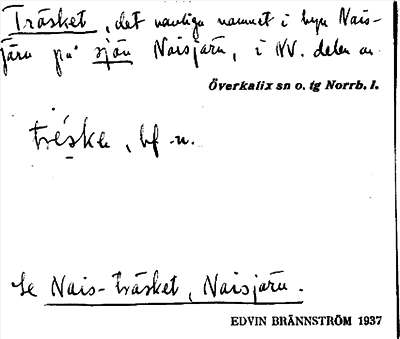 Träsket, det vanliga namnet i byn Nais-
järv på sjön Naisjärv, i NV. delen av
Överkalix sn o. tg Norrb. l.
tréskə, bf. n.
Se Nais-träsket, Naisjärv.
EDVIN BRÄNNSTRÖM 1937